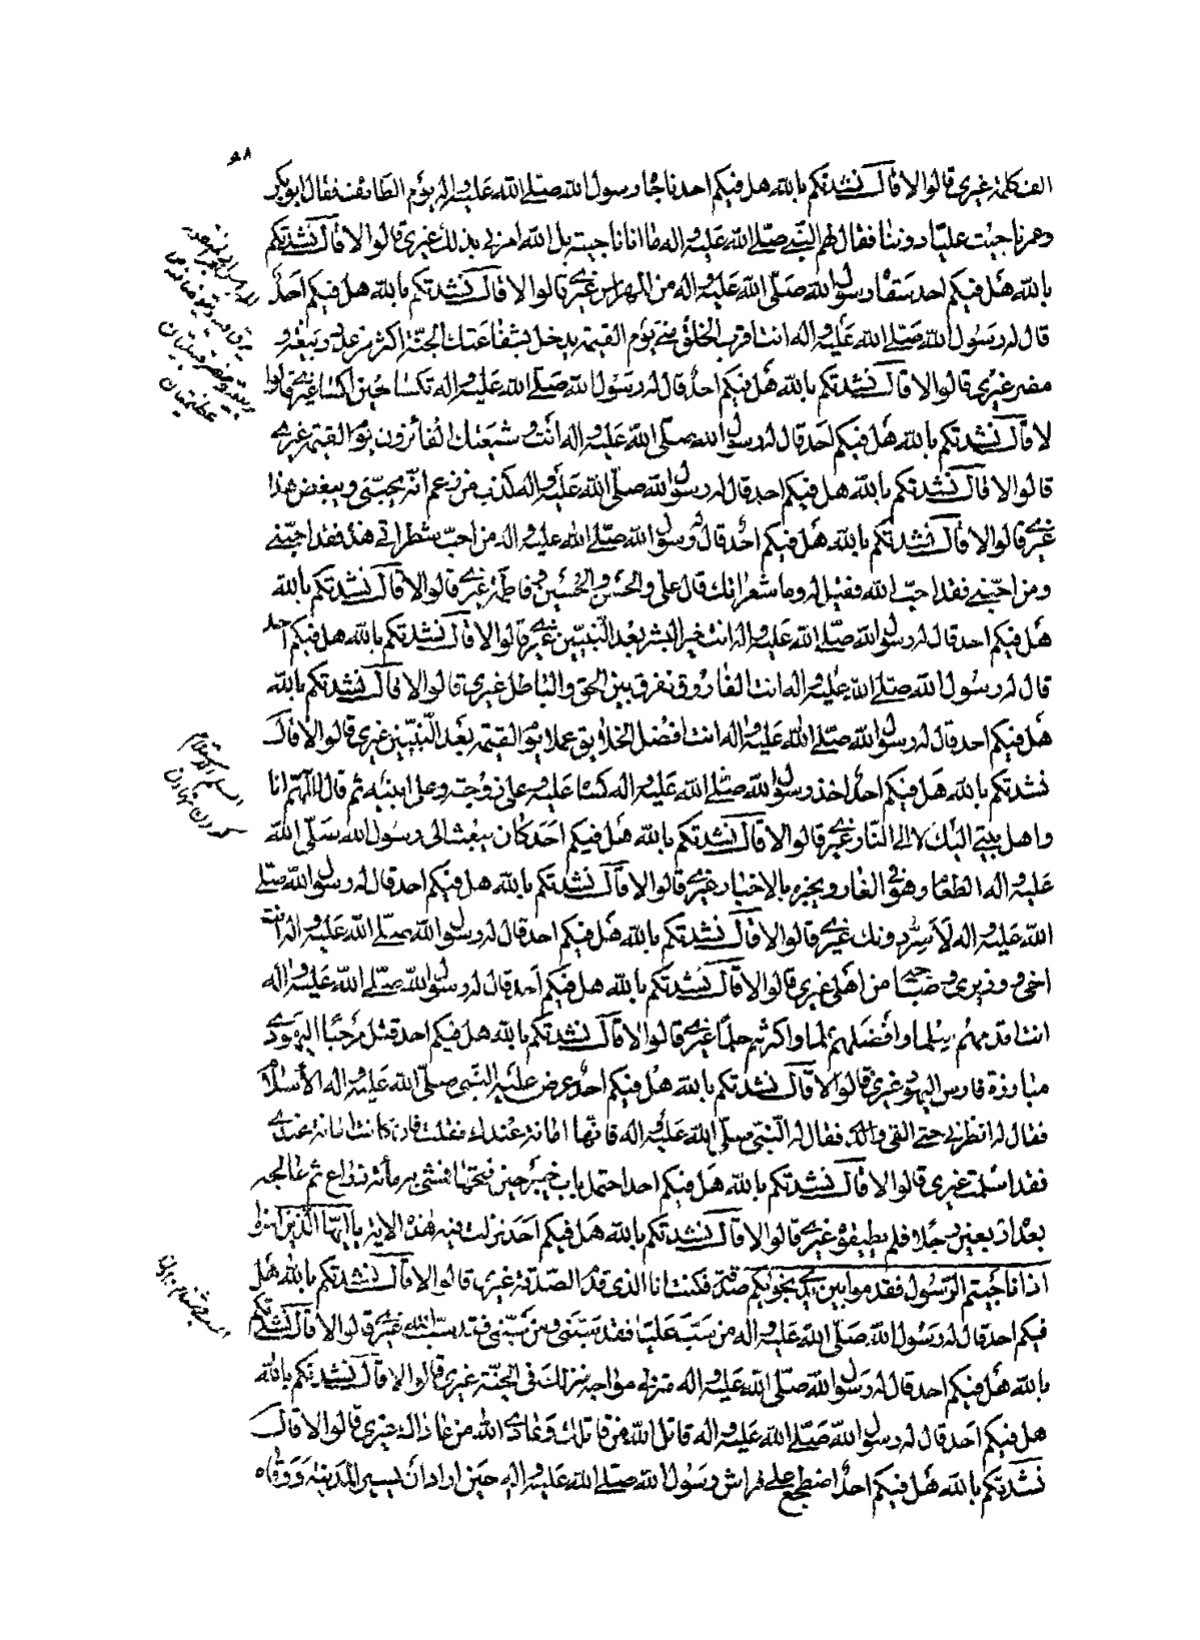 ٥٨
الف كلمة غيرى قالوا لا قال نشدتكم بالله هل فيكم احد ناجاه رسول الله صلى الله عليه واله يوم الطائف فقال ابو بكر
وعمر ناجيت عليا دوننا فقال لهم النبى صلى الله عليه واله ما انا ناجيته بل الله امرنى بذلك غيرى قالوا لا قال نشدتكم
بالله هل فيكم احد سقاه رسول الله صلى الله عليه واله من المهراس غيرى قالوا لا قال نشدتكم بالله هل فيكم احد
قال له رسول الله صلى الله عليه واله انت اقرب الخلق منى يوم القيمة يدخل بشفاعتك الجنة اكثر من عدد ربيعة و
مضر غيرى قالوا لا قال نشدتكم بالله هل فيكم احد قال له رسول الله صلى الله عليه واله تكسا حين اكسا غيرى قالوا
لا قال نشدتكم بالله هل فيكم احد قال له رسول الله صلى الله عليه واله انت وشيعتك الفائزون يوم القيمة غيرى
قالوا لا قال نشدتكم بالله هل فيكم احد قال له رسول الله صلى الله عليه واله كذب من زعم انه يحبنى ويبغض هذا
غيرى قالوا لا قال نشدتكم بالله هل فيكم احد قال له رسول الله صلى الله عليه واله من احب شطراتى هذه فقد احبنى
ومن احبنى فقد احب الله فقيل له وما شطراتك قال على والحسن والحسين وفاطمة غيرى قالوا لا قال نشدتكم بالله
هل فيكم احد قال له رسول الله صلى الله عليه واله انت خير البشر بعد النبيين غيرى قالوا لا قال نشدتكم بالله هل فيكم احد
قال له رسول الله صلى الله عليه واله انت الفاروق تفرق بين الحق والباطل غيرى قالوا لا قال نشدتكم بالله
هل فيكم احد قال له رسول الله صلى الله عليه واله انت افضل الخلائق عملا يوم القيمة بعد النبيين غيرى قالوا لا قال
نشدتكم بالله هل فيكم احد اخذ رسول الله صلى الله عليه واله كساه عليه وعلى زوجته وعلى ابنيه ثم قال اللهم انا
واهل بيتى اليك لا الى النار غيرى قالوا لا قال نشدتكم بالله هل فيكم احد كان يبعث الى رسول الله صلى الله
عليه واله الطعام وهو فى الغار ويخبره بالاخبار غيرى قالوا لا قال نشدتكم بالله هل فيكم احد قال له رسول الله صلى
الله عليه واله لا سر دونك غيرى قالوا لا قال نشدتكم بالله هل فيكم احد قال له رسول الله صلى الله عليه واله انت
اخى ووزيرى وصاحبى من اهلى غيرى قالوا لا قال نشدتكم بالله هل فيكم احد قال له رسول الله صلى الله عليه واله
انت اقدمهم سلما وافضلهم علما واكثرهم حلما غيرى قالوا لا قال نشدتكم بالله هل فيكم احد قتل مرحبا اليهودى
مبارزة فارس اليهود غيرى قالوا لا قال نشدتكم بالله هل فيكم احد عرض عليه النبى صلى الله عليه واله الاسلام
فقال له انظرنى حتى القى والدى فقال له النبى صلى الله عليه واله فانها امانة عندك فقلت فان كانت امانة عندى
فقد اسلمت غيرى قالوا لا قال نشدتكم بالله هل فيكم احد احتمل باب خيبر حين فتحها فمشى به مأة ذراع ثم عالجه
بعده اربعين رجلا فلم يطيقوه غيرى قالوا لا قال نشدتكم بالله هل فيكم احد نزلت فيه هذه الاية يا ايها الذين امنوا
اذا ناجيتم الرسول فقدموا بين يدى نجويكم صدقة فكنت انا الذى قدم الصدقة غيرى قالوا لا قال نشدتكم بالله هل
فيكم احد قال له رسول الله صلى الله عليه واله من سب عليا فقد سبنى ومن سبنى فقد سب الله غيرى قالوا لا قال نشدتكم
بالله هل فيكم احد قال له رسول الله صلى الله عليه واله منزلى مواجه منزلك فى الجنة غيرى قالوا لا قال نشدتكم بالله
هل فيكم احد قال له رسول الله صلى الله عليه واله قاتل الله من قاتلك وعادى الله من عاداك غيرى قالوا لا قال
نشدتكم بالله هل فيكم احد اضطجع على فراش رسول الله صلى الله عليه واله حين اراد ان يسير المدينة ووقاه